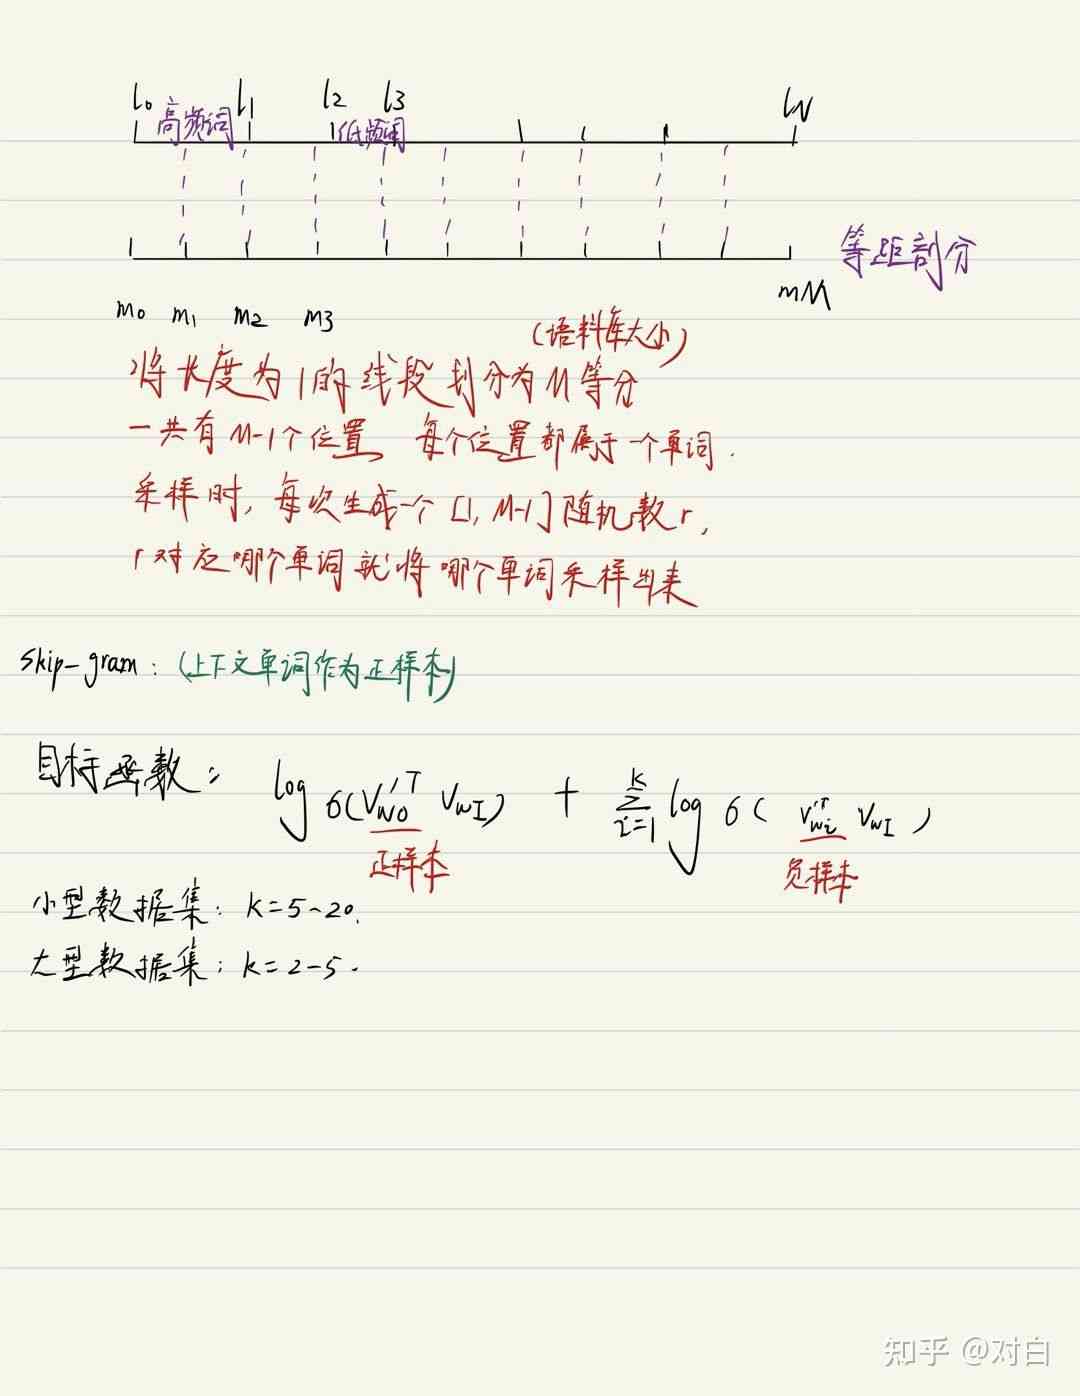 l₀ 高频词 l₁ l₂ 低频词 l₃ lN
等距剖分
m₀ m₁ m₂ m₃ mM
(语料库大小)
将长度为1的线段划分为M等分
一共有M-1个位置,每个位置都属于一个单词.
采样时,每次生成一个[1, M-1]随机数r,
r对应哪个单词就将哪个单词采样出来
skip-gram: (上下文单词作为正样本)
目标函数: log σ(V'ᵀwo VwI) + Σᵢ₌₁ᵏ log σ(V'ᵀwi VwI)
正样本 负样本
小型数据集: k=5~20.
大型数据集: k=2-5.
知乎 @对白